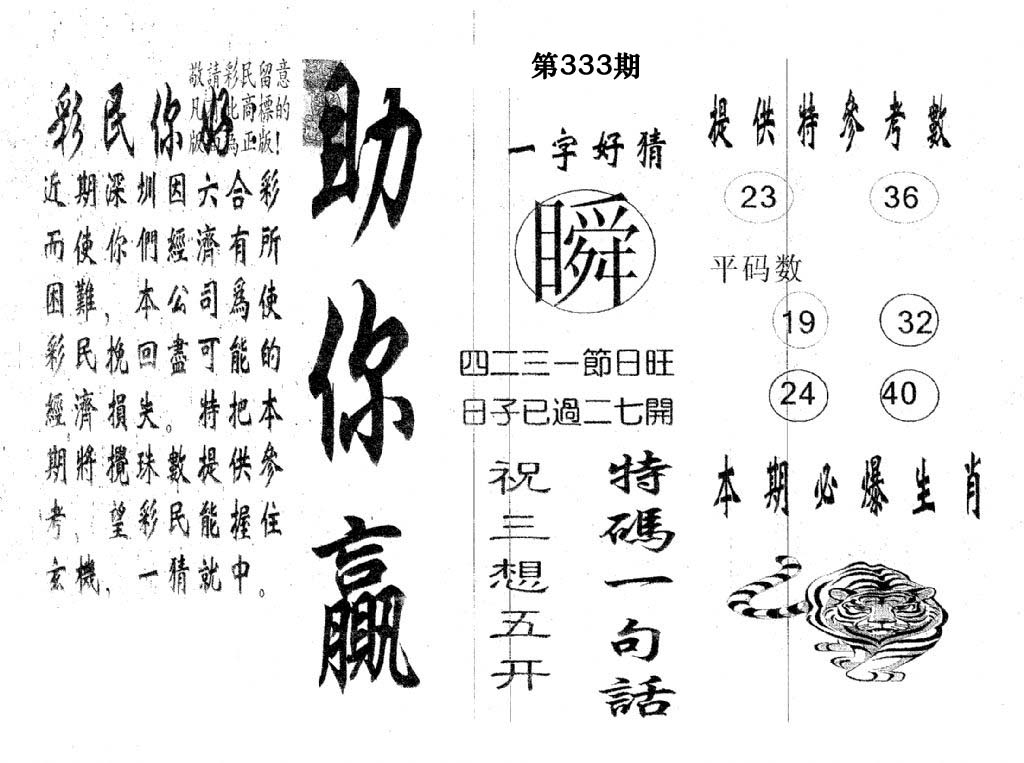 第333期
敬請彩民留意
彩民你好
近期深圳因六合彩
而使你們經濟有所
困難，本公司爲使
彩民挽回盡可能的
經濟損失。特把本
期將攪珠數提供參
考，望彩民能握住
玄機，一猜就中。
助你贏
一字好猜
瞬
四二三一節日旺
日子已過二七開
特碼一句話
祝三想五开
提供特參考數
23 36
平码数
19 32
24 40
本期必爆生肖